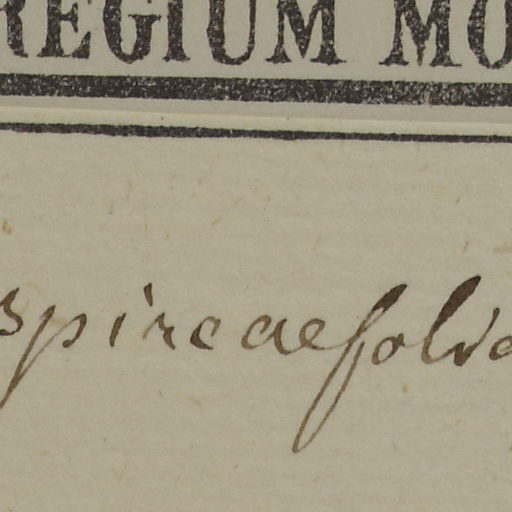 REGIUM MO
spireaefolia